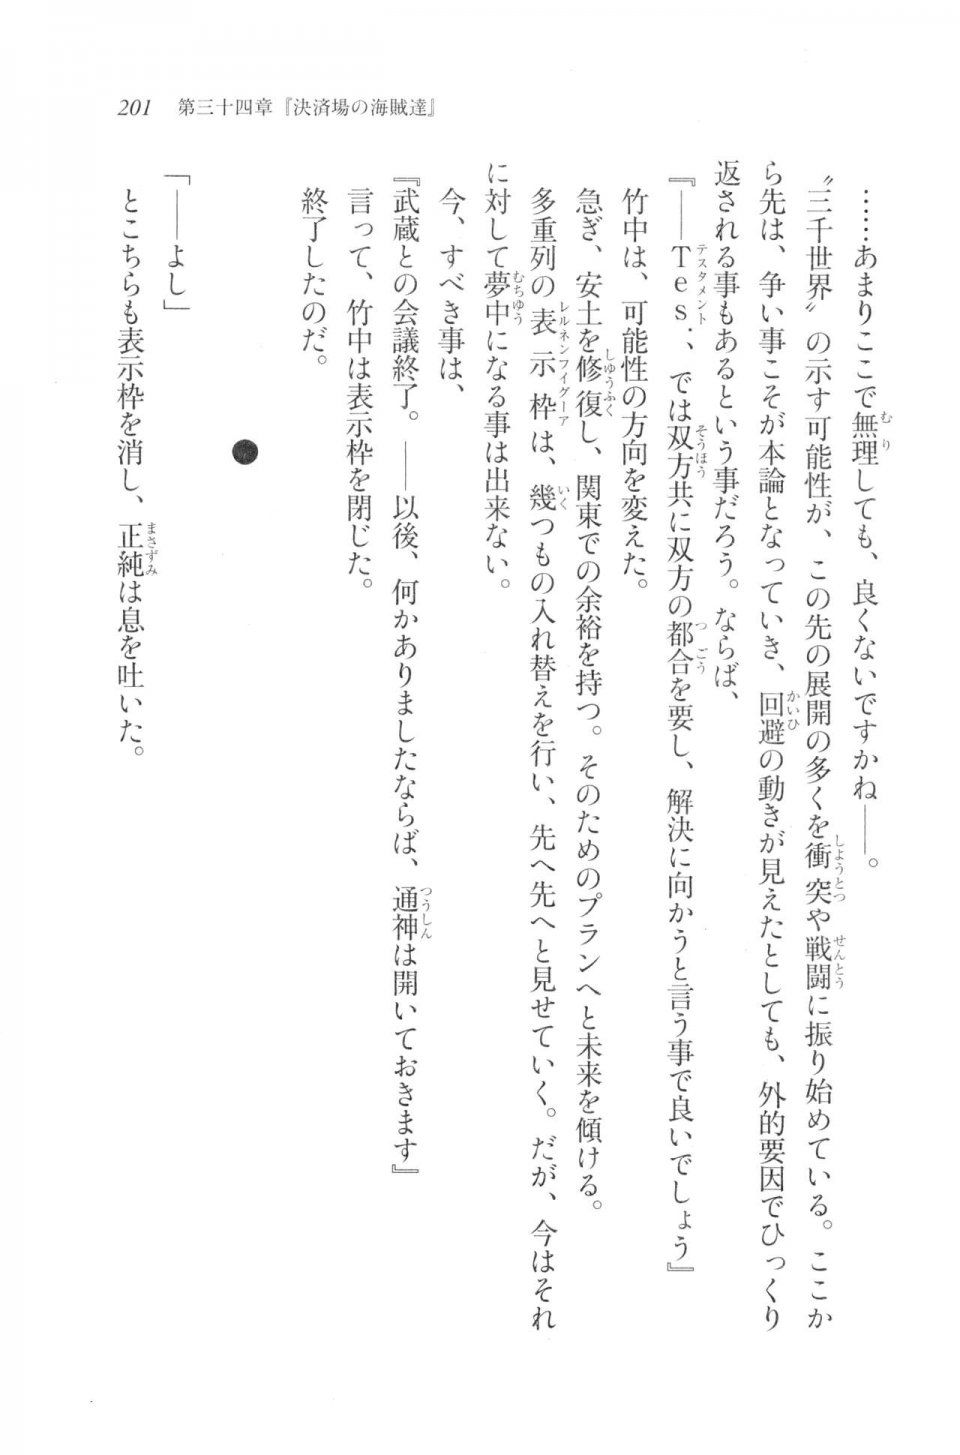 201　第三十四章『決済場の海賊達』
……あまりここで無理しても、良くないですかね——。
〝三千世界〟の示す可能性が、この先の展開の多くを衝突や戦闘に振り始めている。ここか
ら先は、争い事こそが本論となっていき、回避の動きが見えたとしても、外的要因でひっくり
返される事もあるという事だろう。ならば、
『——Tes.、では双方共に双方の都合を要し、解決に向かうと言う事で良いでしょう』
竹中は、可能性の方向を変えた。
急ぎ、安土を修復し、関東での余裕を持つ。そのためのプランへと未来を傾ける。
多重列の表示枠は、幾つもの入れ替えを行い、先へ先へと見せていく。だが、今はそれ
に対して夢中になる事は出来ない。
今、すべき事は、
『武蔵との会議終了。——以後、何かありましたならば、通神は開いておきます』
言って、竹中は表示枠を閉じた。
終了したのだ。
●
「——よし」
とこちらも表示枠を消し、正純は息を吐いた。